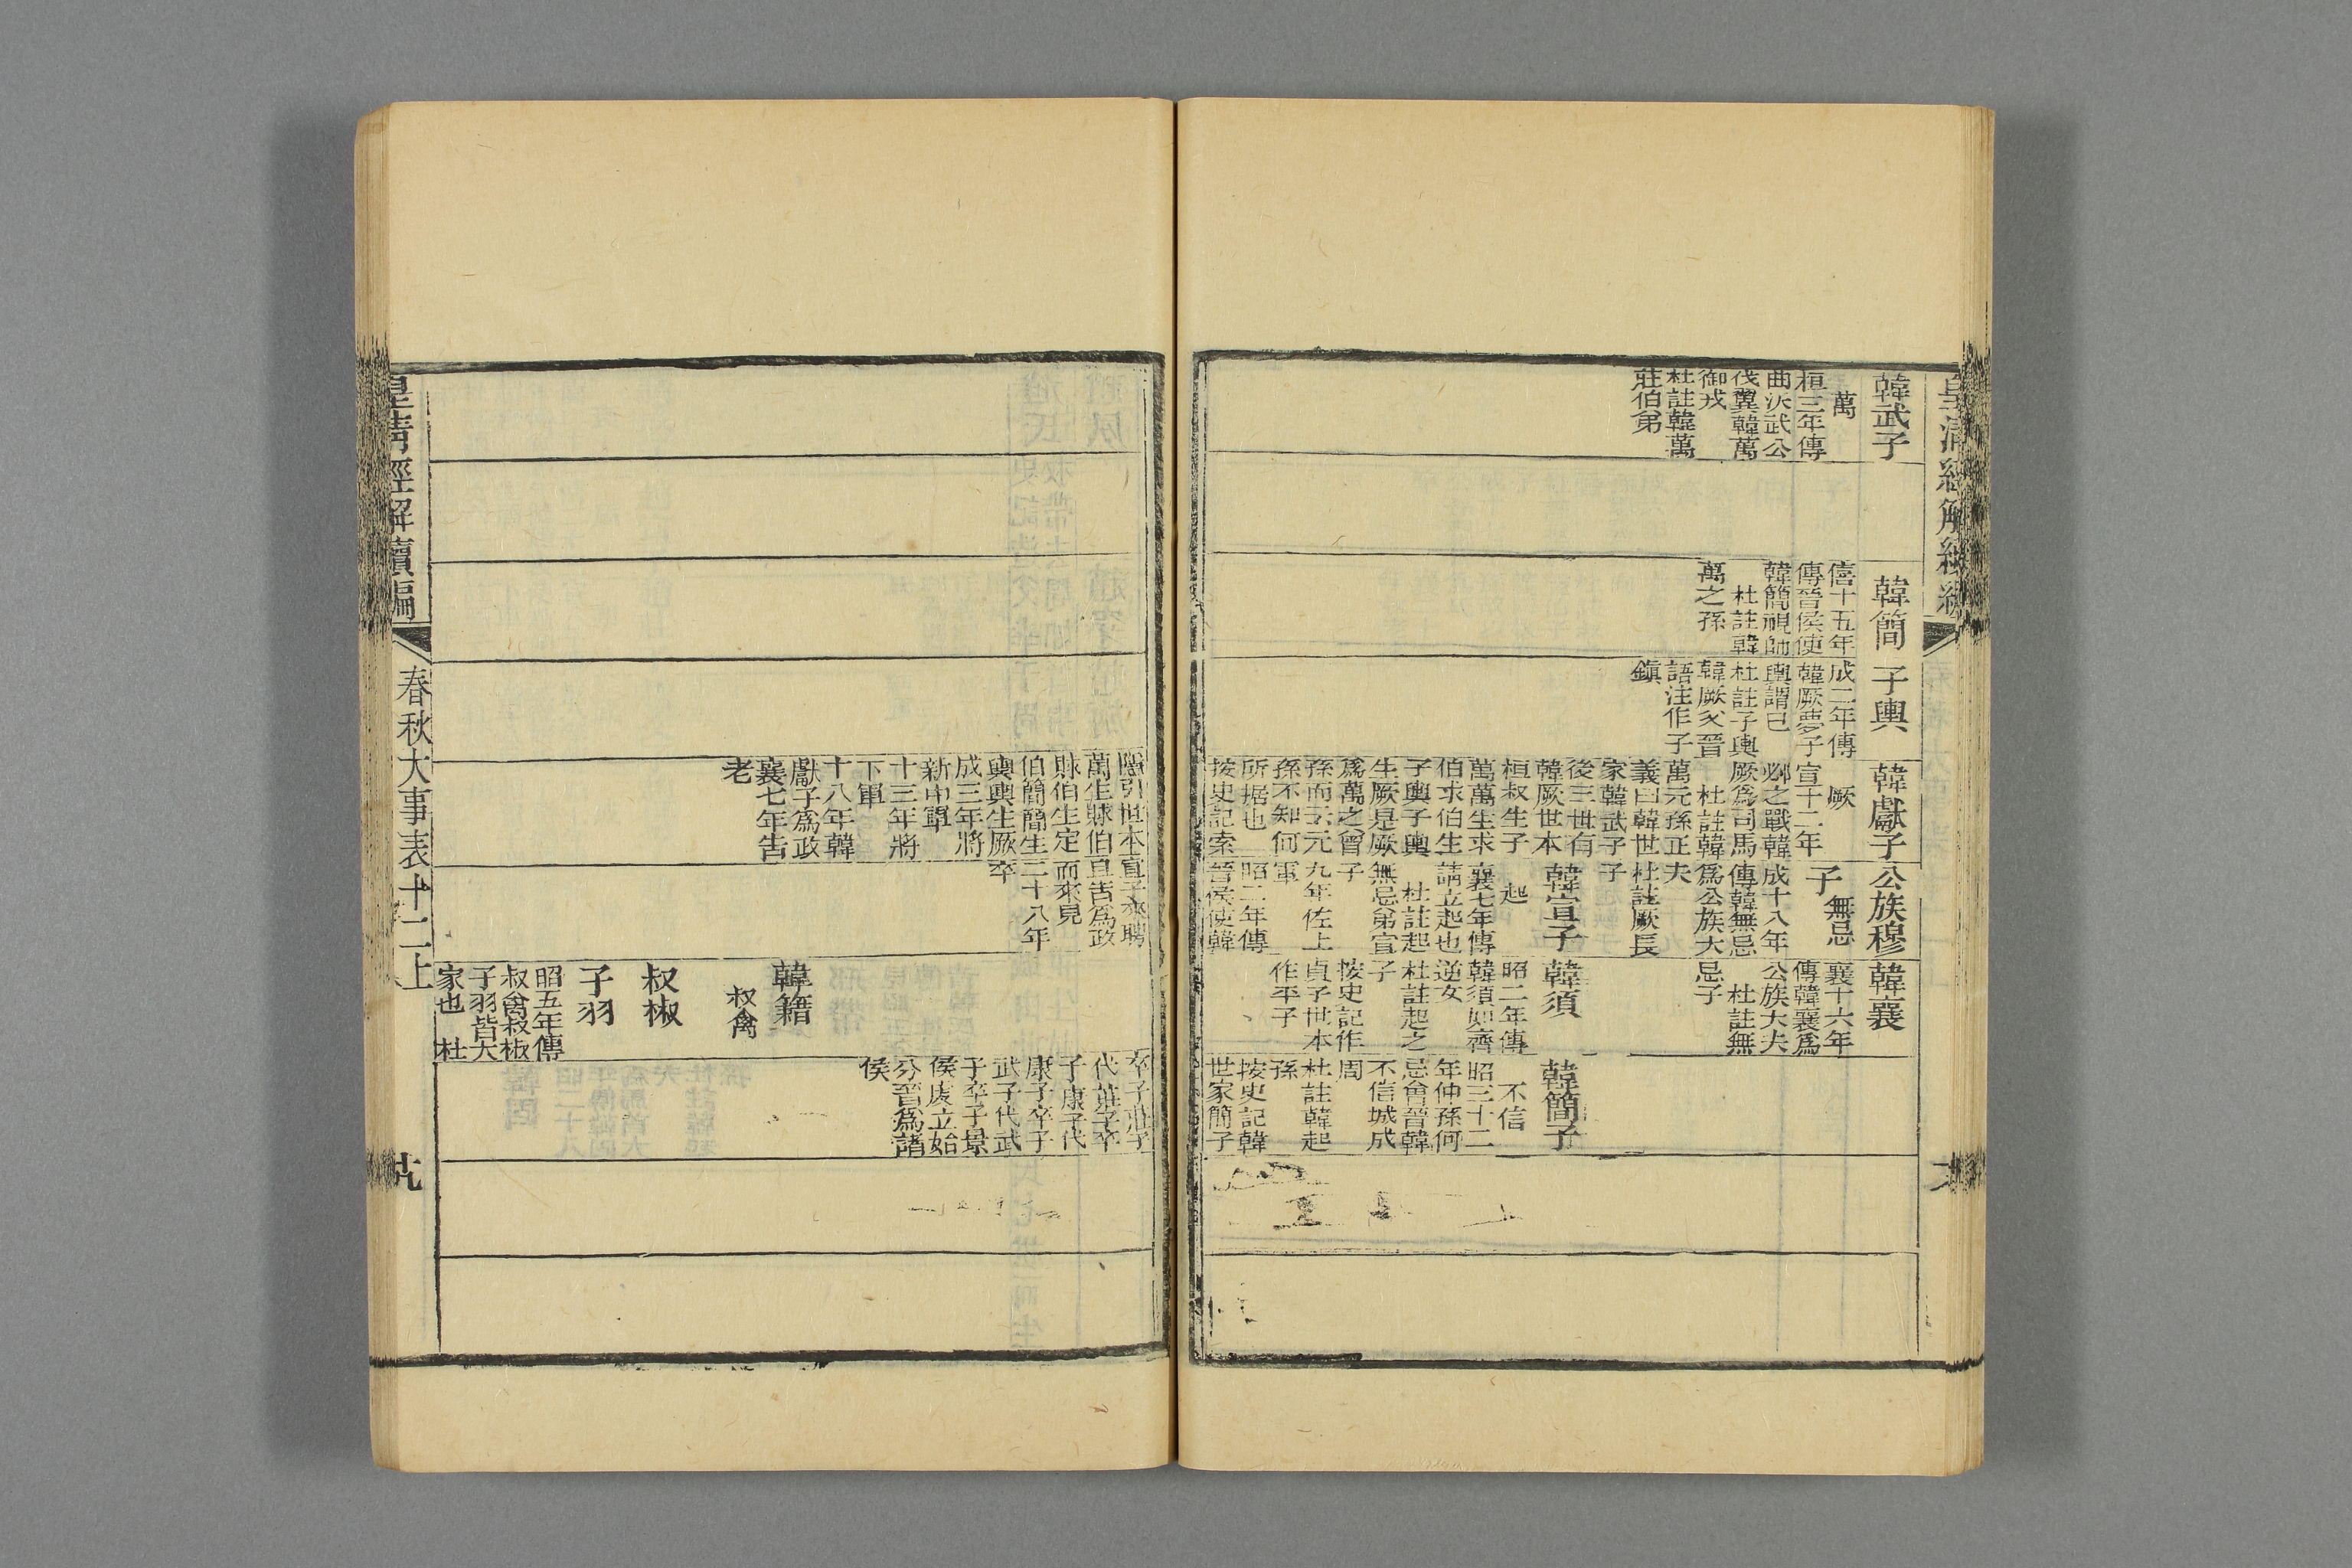 皇清經解續編
韓武子
萬
桓三年傳
曲沃武公
伐翼韓萬
御戎
杜註韓萬
莊伯弟
韓簡
僖十五年
傳晉侯使
韓簡視師
杜註韓
萬之孫
子輿
成二年傳
韓厥夢子
輿謂己
杜註子輿
韓厥父晉
語注作子
鎮
韓獻子
厥
宣十二年
邲之戰韓
厥爲司馬
杜註韓
萬元孫正
義曰韓世
家韓武子
後三世有
韓厥世本
桓叔生子
萬萬生求
伯求伯生
子輿子輿
生厥是厥
爲萬之曾
孫而云元
孫不知何
所据也
按史記索
公族穆
子
無忌
成十八年
傳韓無忌
爲公族大
夫
杜註厥長
子
韓宣子
起
襄七年傳
請立起也
杜註起
無忌弟宣
子
九年佐上
軍
昭二年傳
晉侯使韓
韓襄
襄十六年
傳韓襄爲
公族大夫
杜註無
忌子
韓須
昭二年傳
韓須如齊
逆女
杜註起之
子
按史記作
貞子世本
作平子
韓簡子
不信
昭三十二
年仲孫何
忌會晉韓
不信城成
周
杜註韓起
孫
按史記韓
世家簡子
隱引世本
萬生賕伯
賕伯生定
伯簡簡生
輿輿生厥
成三年將
新中軍
十三年將
下軍
十八年韓
獻子爲政
襄七年告
老
宣子來聘
且告爲政
而來見
二十八年
卒
韓籍
叔禽
叔椒
子羽
昭五年傳
叔禽叔椒
子羽皆大
家也　杜
卒子莊子
代莊子卒
子康子代
康子卒子
武子代武
子卒子景
侯虔立始
分晉爲諸
侯
皇清經解續編
春秋大事表十二上